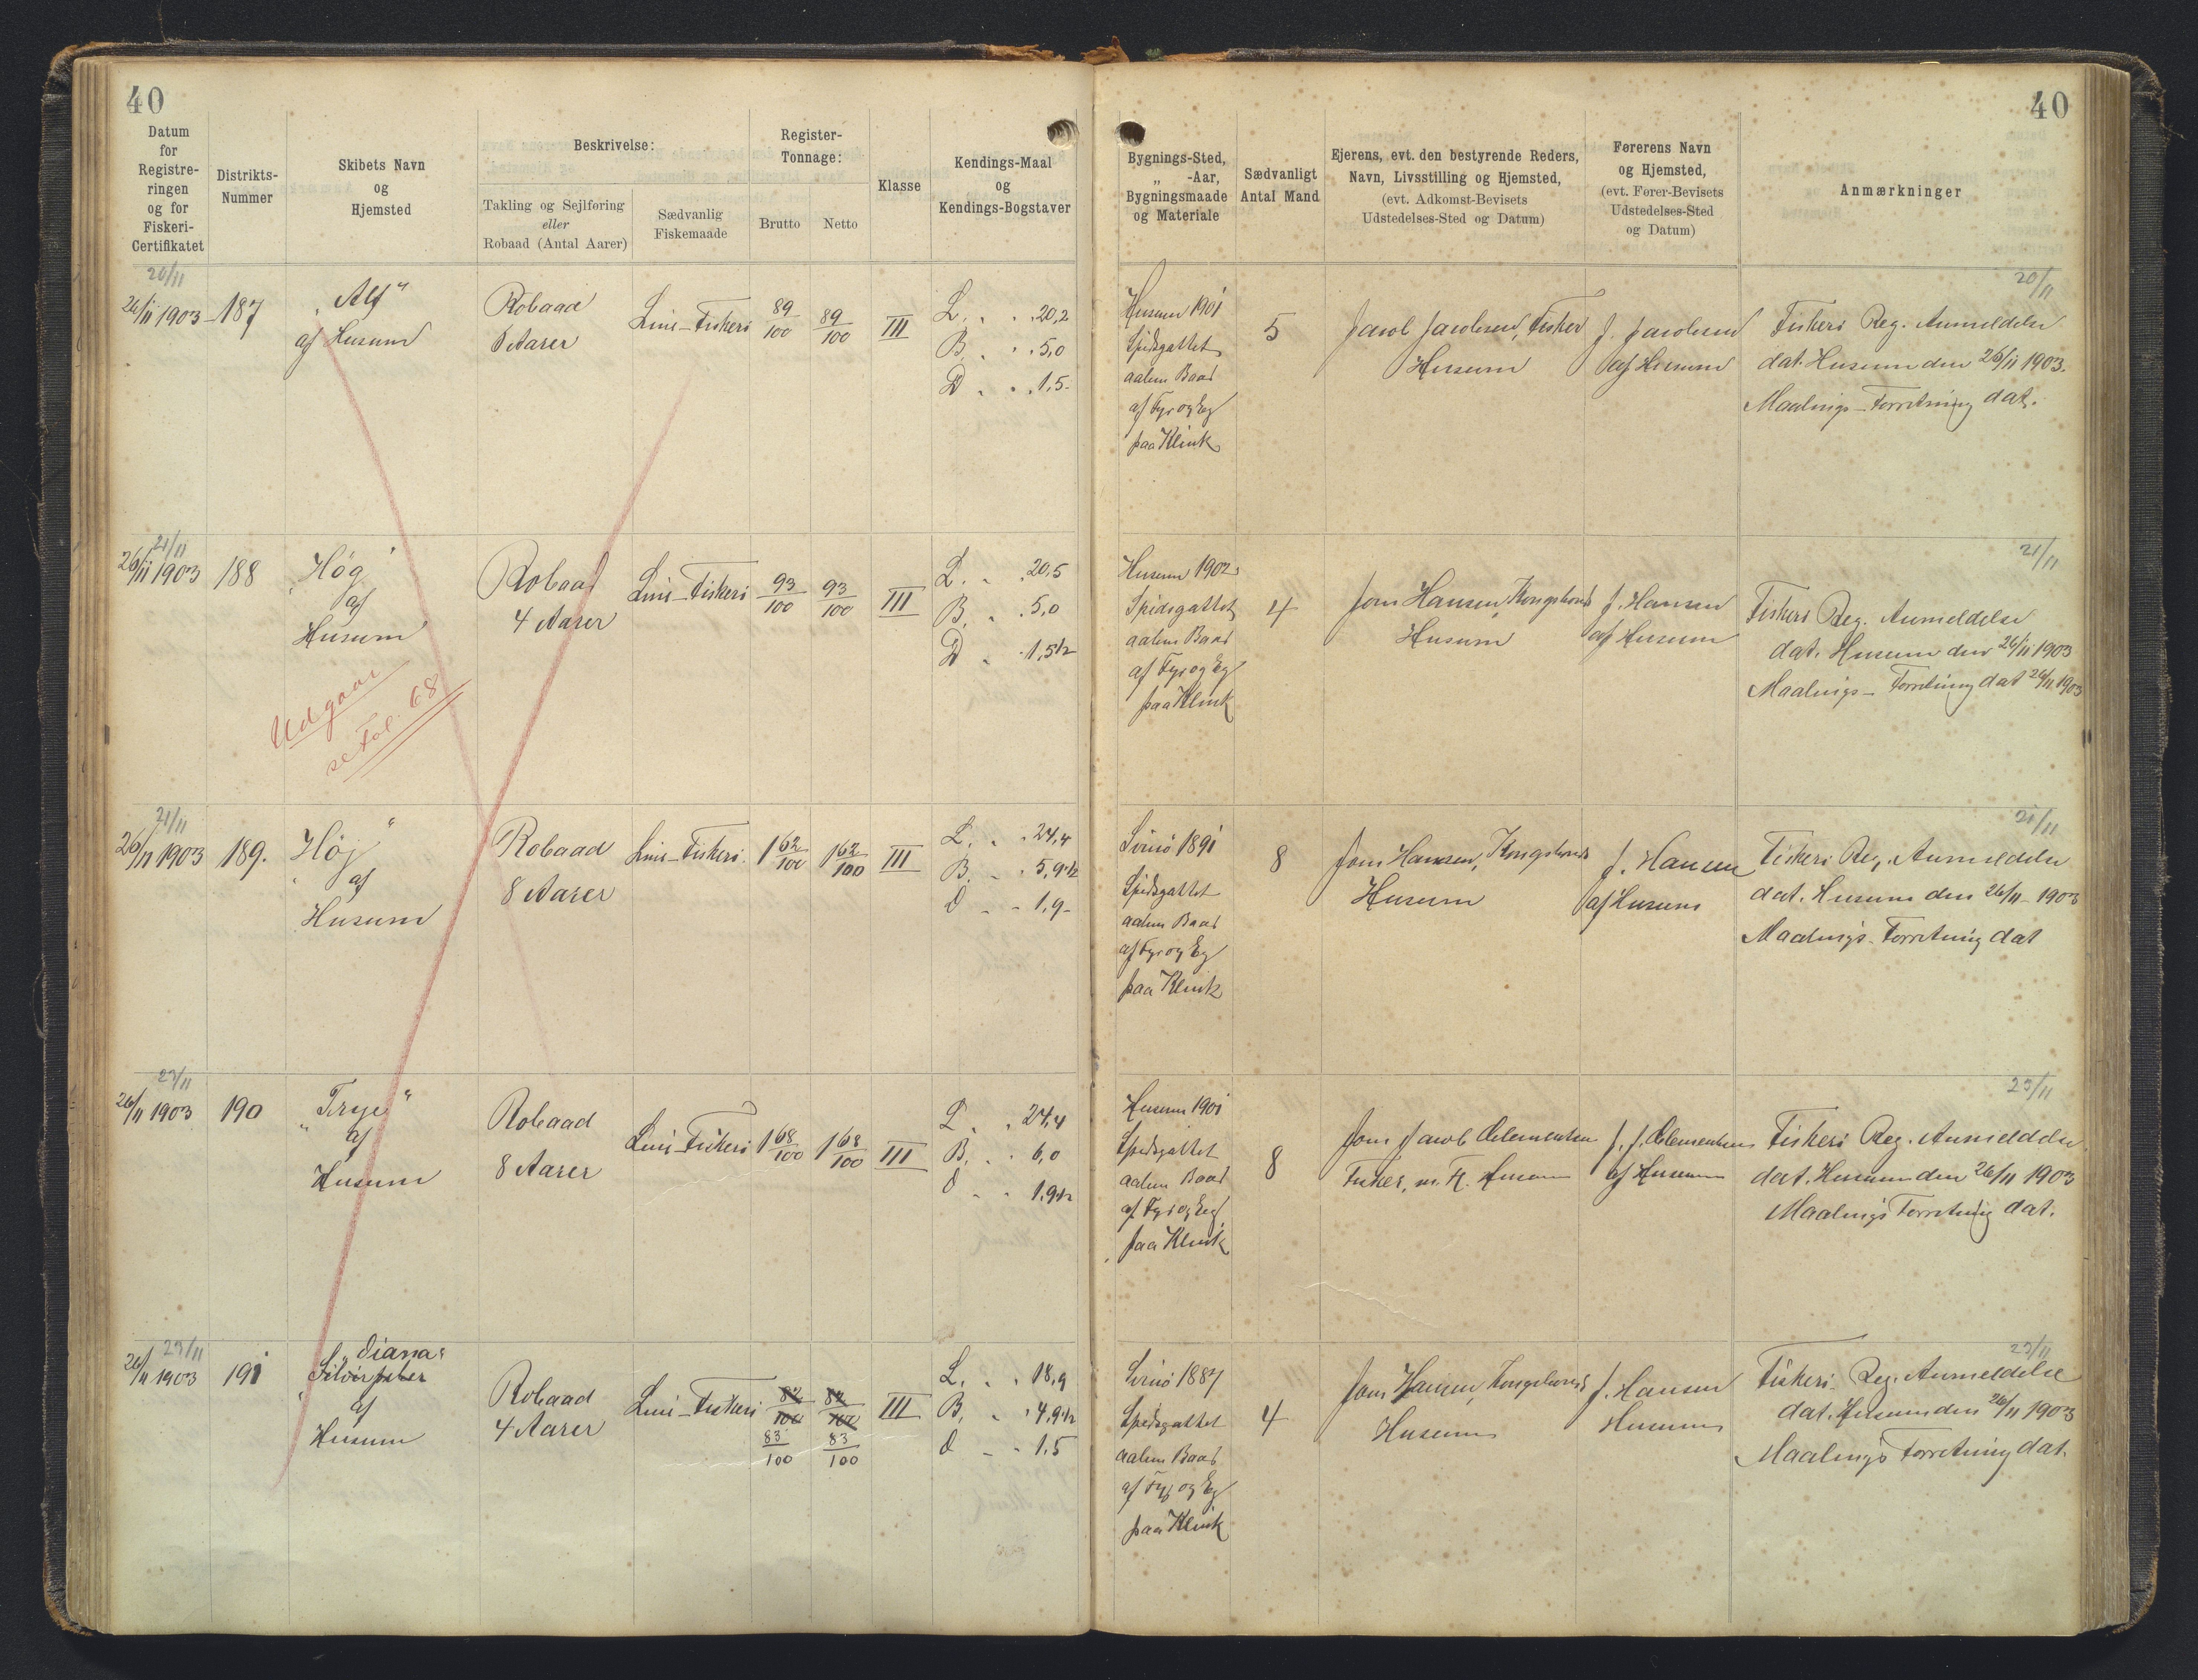 40
40
Datum
for
Registre-
ringen
og for
Fiskeri-
Certifikatet
Distrikts-
Nummer
Skibets Navn
og
Hjemsted
Beskrivelse:
Takling og Sejlføring
eller
Robaad (Antal Aarer)
Sædvanlig
Fiskemaade
Register-
Tonnage:
Brutto
Netto
Klasse
Kendings-Maal
og
Kendings-Bogstaver
Bygnings-Sted,
„ -Aar,
Bygningsmaade
og Materiale
Sædvanligt
Antal Mand
Ejerens, evt. den bestyrende Reders,
Navn, Livsstilling og Hjemsted,
(evt. Adkomst-Bevisets
Udstedelses-Sted og Datum)
Førerens Navn
og Hjemsted,
(evt. Fører-Bevisets
Udstedelses-Sted
og Datum)
Anmærkninger
20/11
26/11 1903
187
„Alf“
af Husum
Robaad
Aarer
Line-Fiskeri
89/100
89/100
III
L. „ „ 20,2
B. „ „ 5,0
D „ „ 1,5
Husum 1901
Spidsgattet
aaben Baad
af Fyr og Eg
paa Klink
5
Jacob Jacobsen, Fisker
Husum
J. Jacobsen
af Husum
20/11
Fiskeri Reg. Anmeldelse
dat. Husum den 26/11 1903.
Maalings-Forretning dat.
21/11
26/11 1903
188
„Høg“
af
Husum
Udgaar
se Fol. 68
Robaad
4 Aarer
Line-Fiskeri
93/100
93/100
III
L. „ „ 20,5
B. „ 5,0
D „ 1,5 1/2
Husum 1902
Spidsgattet
aaben Baad
af Fyr og Eg
paa Klink
4
Jens Hansen, Kongsbonde
Husum
J. Hansen
af Husum
21/11
Fiskeri Reg. Anmeldelse
dat. Husum den 26/11 1903
Maalings-Forretning dat 26/11 1903
21/11
26/11 1903
189.
„Høj“
af
Husum
Robaad
8 Aarer
Line-Fiskeri.
1 62/100
1 62/100
III
L. „ „ 24,4
B. „ „ 5,9 1/2
D „ „ 1,9
Svinø 1891
Spidsgattet
aaben Baad
af Fyr og Eg
paa Klink
8
Jens Hansen, Kongsbonde
Husum
J. Hansen
af Husum
21/11
Fiskeri Reg. Anmeldelse
dat. Husum den 26/11 1903
Maalings-Forretning dat
23/11
26/11 1903
190
„ “
af
Husum
Robaad
8 Aarer
Line-Fiskeri
1 68/100
1 68/100
III
L „ „ 24,4
B. „ „ 6,0
D „ „ 1,9 1/2
Husum 1901
Spidsgattet
aaben Baad
af Fyr og Eg
paa Klink
8
Jens Jacob Clementsen
Fisker, m. Fl. Husum
J. J. Clementsen
af Husum
23/11
Fiskeri Reg. Anmeldelse
dat. Husum den 26/11 1903
Maalings Forretning dat.
23/11
26/11 1903
191
„Diana“
af
Husum
Robaad
4 Aarer
Line-Fiskeri
82/100
82/100
83/100
83/100
III
L. „ „ 18,9
B. „ „ 4,9 1/2
D „ „ 1,5
Svinø 1887
Spidsgattet
aaben Baad
af Fyr og Eg
paa Klink
4
Jens Hansen, Kongsbonde
Husum
J. Hansen
Husum
23/11
Fiskeri Reg. Anmeldelse
dat. Husum den 26/11 1903
Maalings Forretning dat.